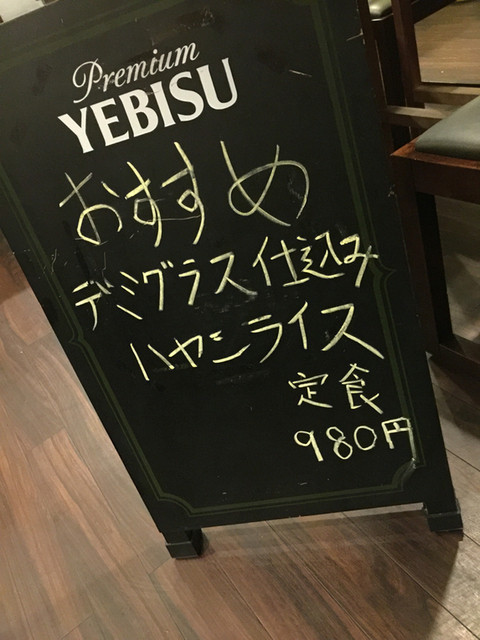 Premium
YEBISU
おすすめ
デミグラス仕込み
ハヤシライス
定食
980円